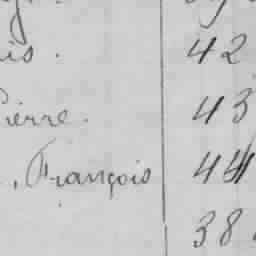 is. 42
Pierre. 43
, François 44
38